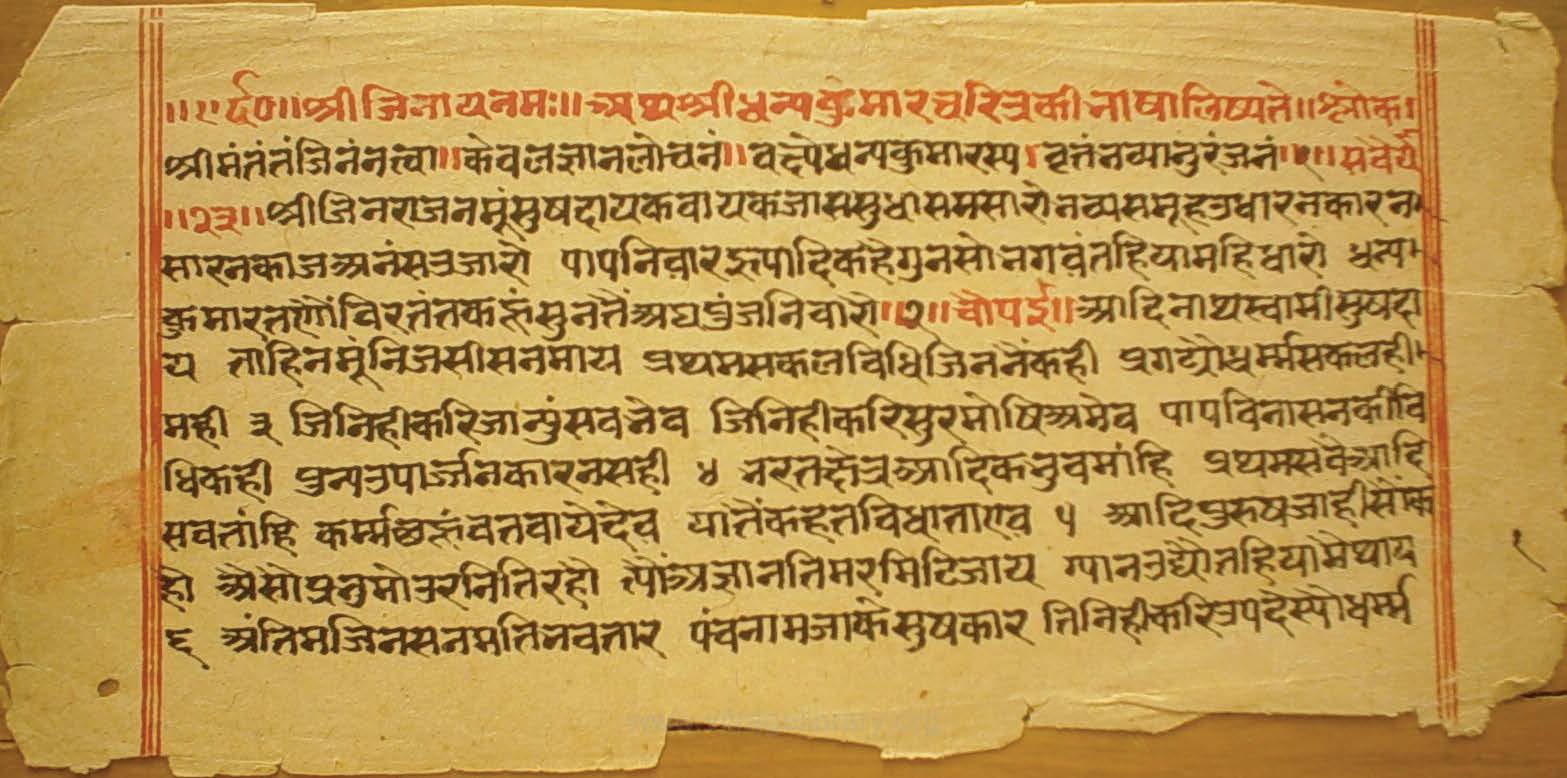 ॥ए र्द०॥श्रीजिनायनमः॥अथश्रीधन्यकुमारचरित्रकीभाषालिष्यते॥श्लोक।
श्रीमंतंतंजिनंनत्वा॥केवलज्ञानलोचनं॥वदयेधन्यकुमारस्य।वृत्तंभव्यानुरंजनं॥१॥सवैये
॥२३॥श्रीजिनराजनमूंसुषदायकवायकजाससुधासमसारोभव्यसमूहउधारनकारन
सारनकाजअनंसउजारो पापनिवारइरूपादिकहैगुनसोभगवंतहियामहिधारो धन्य
कुमारतणौंविरतंतकहूंसुनतैंअघपुंजनिवारो॥२॥चौपई॥आदिनाथस्वामीसुषदा
य ताहिनमूंनिजसीसनमाय प्रथमसकलविधिजिननैंकही प्रगट्योधर्म्मसकलही
मही ३ जिनिहीकरिजान्युंसवभेव जिनिहीकरिसुरमोषिअमेव पापविनासनकीवि
धिकही पुन्यउपार्ज्जनकारनसही ४ भरतक्षेत्रआदिकभुवमांहि प्रथमसवैआदि
सवतांहि कर्म्मछहूंवतवायेदेव यातैंकहतविधाताएव ५ आदिपुरुषजाहीसोंक
हो अैसोप्रभुमोउरनितिरहो त्यौंअज्ञानतिमरमिटिजाय ग्यानउद्यौतहियामेथाय
६ अंतिमजिनसनमतिभवतार पंचनामजाकेसुषकार तिनिहीकरिउपदेस्योधर्म्म
१